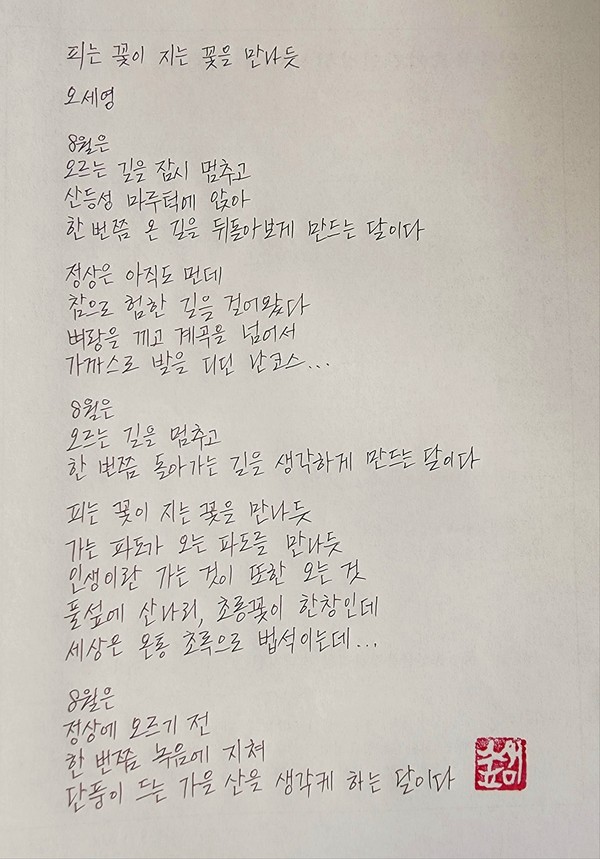 피는 꽃이 지는 꽃을 만나듯
오세영
8월은
오르는 길을 잠시 멈추고
산등성 마루턱에 앉아
한 번쯤 온 길을 뒤돌아보게 만드는 달이다
정상은 아직도 먼데
참으로 험한 길을 걸어왔다
벼랑을 끼고 계곡을 넘어서
가까스로 발을 디딘 난코스...
8월은
오르는 길을 멈추고
한 번쯤 돌아가는 길을 생각하게 만드는 달이다
피는 꽃이 지는 꽃을 만나듯
가는 파도가 오는 파도를 만나듯
인생이란 가는 것이 또한 오는 것
풀섶에 산나리, 초롱꽃이 한창인데
세상은 온통 초록으로 법석이는데...
8월은
정상에 오르기 전
한 번쯤 녹음에 지쳐
단풍이 드는 가을 산을 생각케 하는 달이다